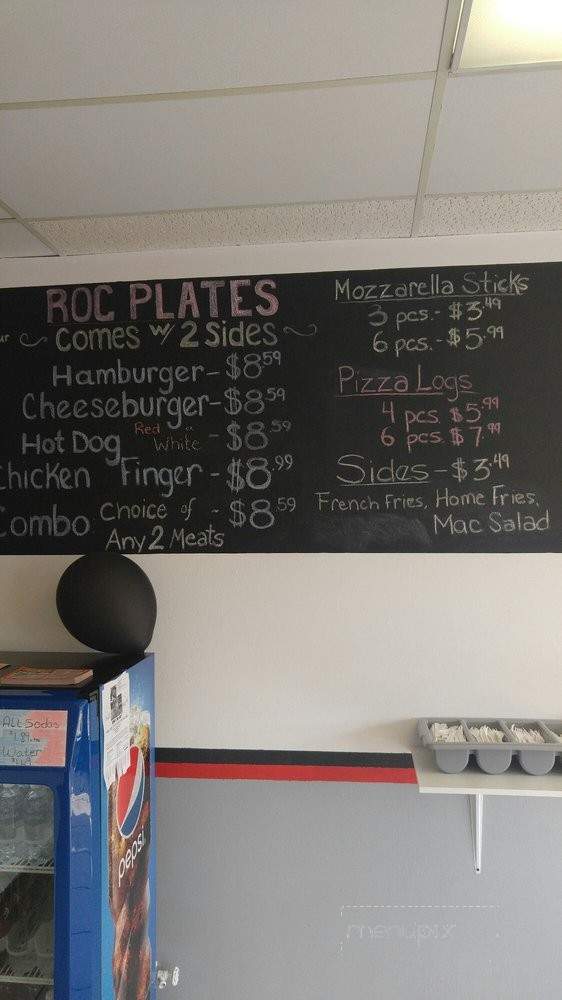 ROC PLATES
Comes w/ 2 Sides
Hamburger - $8.59
Cheeseburger - $8.59
Hot Dog Red or White - $8.59
Chicken Finger - $8.99
Combo Choice of Any 2 Meats - $8.59
Mozzarella Sticks
3 pcs. - $3.49
6 pcs. - $5.99
Pizza Logs
4 pcs $5.99
6 pcs $7.99
Sides - $3.49
French Fries, Home Fries,
Mac Salad
All Sodas
Water
pepsi
menupix